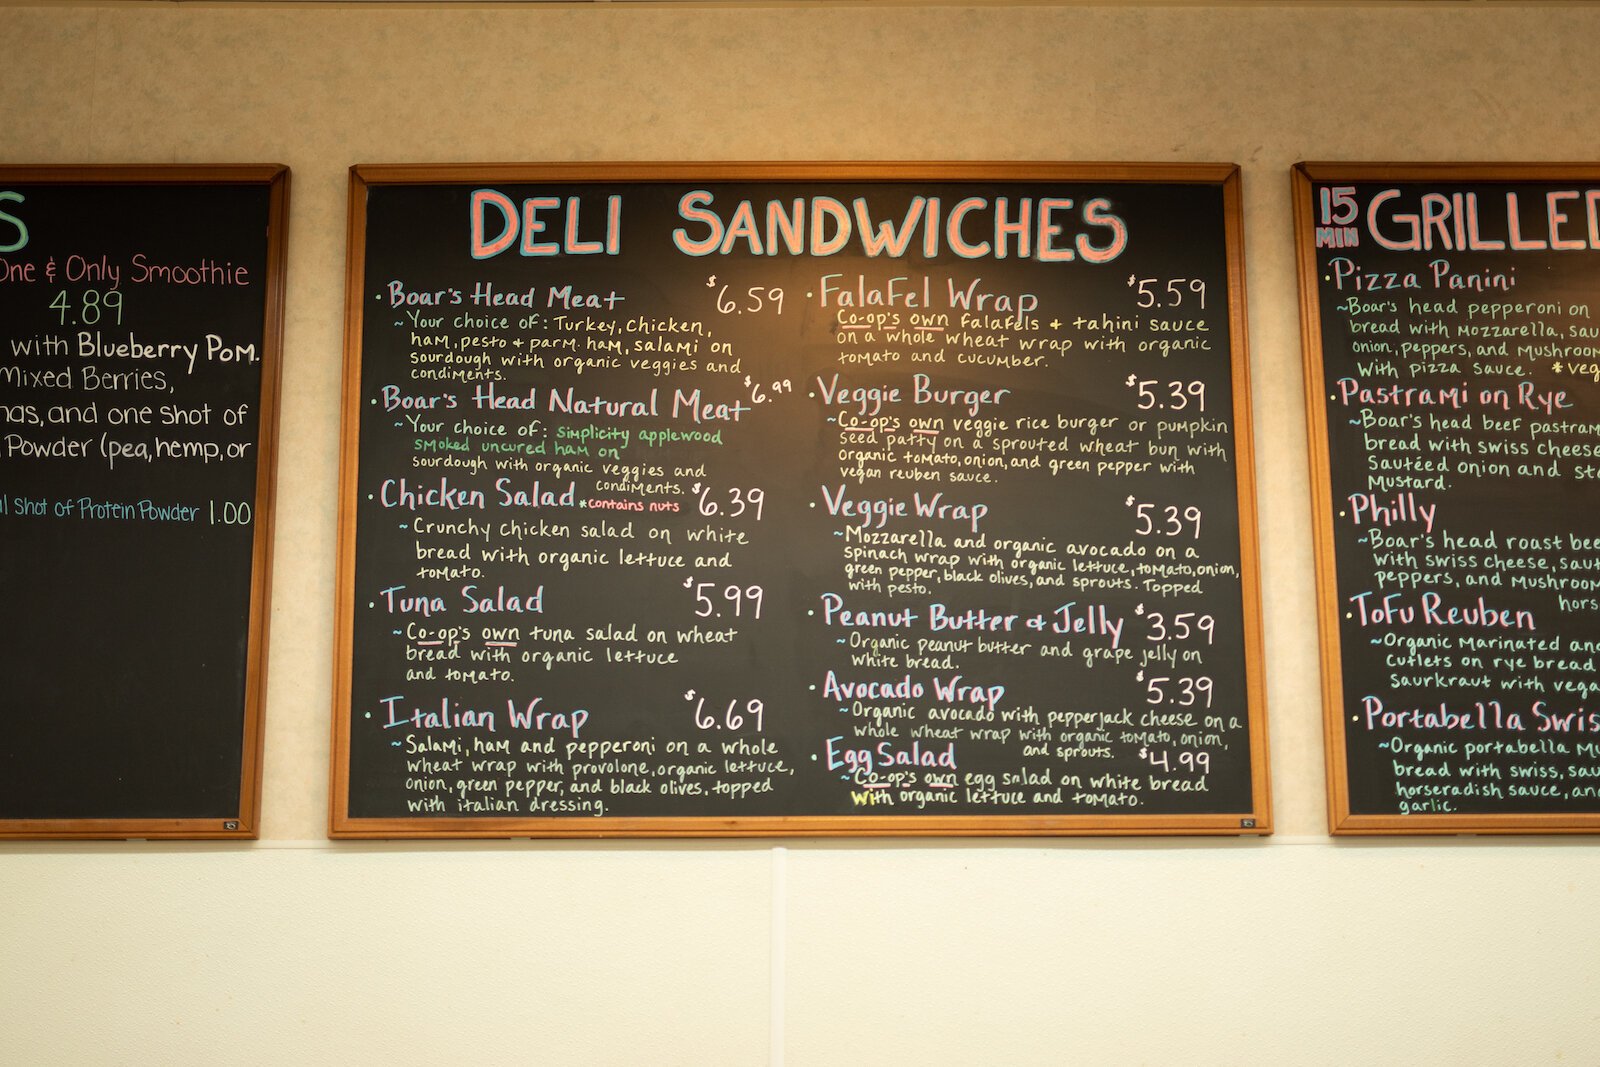 S
One & Only Smoothie
4.89
with Blueberry Pom.
Mixed Berries,
nas, and one shot of
Powder (pea, hemp, or
l Shot of Protein Powder 1.00
DELI SANDWICHES
· Boar's Head Meat $6.59
~ Your choice of: Turkey, chicken,
ham, pesto + parm. ham, salami on
sourdough with organic veggies and
condiments.
· Boar's Head Natural Meat $6.99
~ Your choice of: simplicity applewood
smoked uncured ham on
sourdough with organic veggies and
condiments.
· Chicken Salad *contains nuts $6.39
~ Crunchy chicken salad on white
bread with organic lettuce and
tomato.
· Tuna Salad $5.99
~ Co-op's own tuna salad on wheat
bread with organic lettuce
and tomato.
· Italian Wrap $6.69
~ Salami, ham and pepperoni on a whole
wheat wrap with provolone, organic lettuce,
onion, green pepper, and black olives, topped
with italian dressing.
· Falafel Wrap $5.59
Co-op's own falafels + tahini sauce
on a whole wheat wrap with organic
tomato and cucumber.
· Veggie Burger $5.39
~ Co-op's own veggie rice burger or pumpkin
seed patty on a sprouted wheat bun with
organic tomato, onion, and green pepper with
vegan reuben sauce.
· Veggie Wrap $5.39
~ Mozzarella and organic avocado on a
spinach wrap with organic lettuce, tomato, onion,
green pepper, black olives, and sprouts. Topped
with pesto.
· Peanut Butter & Jelly $3.59
~ Organic peanut butter and grape jelly on
white bread.
· Avocado Wrap $5.39
~ Organic avocado with pepperjack cheese on a
whole wheat wrap with organic tomato, onion,
and sprouts.
· Egg Salad $4.99
~ Co-op's own egg salad on white bread
with organic lettuce and tomato.
15 MIN GRILLED
· Pizza Panini
~ Boar's head pepperoni on
bread with mozzarella, sau
onion, peppers, and mushroom
with pizza sauce. *veg
· Pastrami on Rye
~ Boar's head beef pastram
bread with swiss cheese
Sautéed onion and sto
Mustard.
· Philly
~ Boar's head roast bee
with swiss cheese, saut
peppers, and mushroom
hors
· Tofu Reuben
~ Organic marinated and
cutlets on rye bread
saurkraut with vega
· Portabella Swis
~ Organic portabella mu
bread with swiss, sau
horseradish sauce, an
garlic.